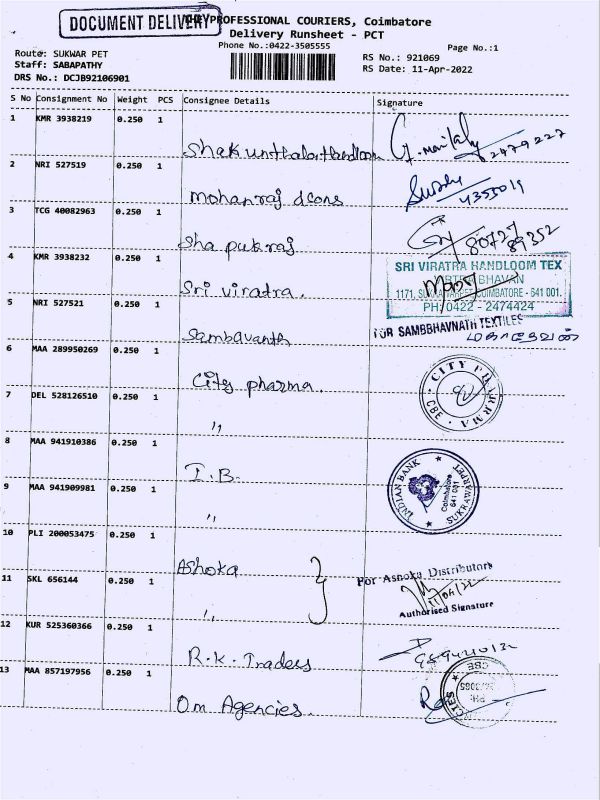 DOCUMENT DELIVERY
PROFESSIONAL COURIERS, Coimbatore
Delivery Runsheet - PCT
Phone No.:0422-3505555
Page No.:1
Route: SUKWAR PET
Staff: SABAPATHY
DRS No.: DCJB92106901
RS No.: 921069
RS Date: 11-Apr-2022
S No Consignment No Weight PCS Consignee Details Signature
1 KMR 3938219 0.250 1
Shakunthala Handloom 2479227
2 NRI 527519 0.250 1
mohanraj dcons 4355019
3 TCG 40082963 0.250 1
Sha pukraj 80727 89352
4 KMR 3938232 0.250 1
Sri viratra.
SRI VIRATRA HANDLOOM TEX
BHAVAN
1171, COIMBATORE - 641 001.
PH: 0422 - 2474424
5 NRI 527521 0.250 1
Sambavanth
FOR SAMBBHAVNATH TEXTILES
6 MAA 289950269 0.250 1
City pharma.
CITY PHARRMA
CBE
7 DEL 528126510 0.250 1
"
8 MAA 941910386 0.250 1
I.B.
INDIAN BANK
Coimbatore
641 001
SUKRAWARPET
9 MAA 941909981 0.250 1
"
10 PLI 200053475 0.250 1
Ashoka
For Ashoka Distributors
11/04/22
Authorised Signature
11 SKL 656144 0.250 1
"
12 KUR 525360366 0.250 1
R.K. Traders
13 MAA 857197956 0.250 1
Om Agencies.
CBE